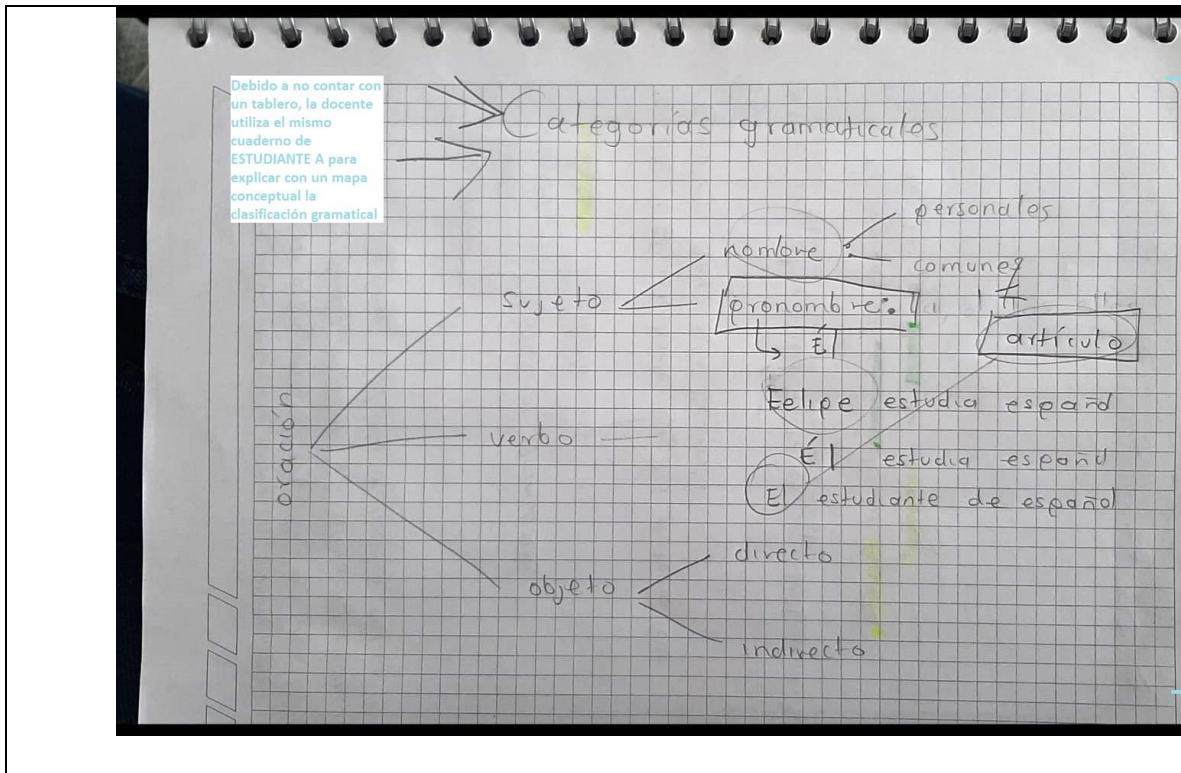 Debido a no contar con
un tablero, la docente
utiliza el mismo
cuaderno de
ESTUDIANTE A para
explicar con un mapa
conceptual la
clasificación gramatical
Categorías gramaticales
personales
nombre
comunes
sujeto
pronombre:
artículo
Él
Felipe estudia español
oración
verbo
Él estudia español
El estudiante de español
directo
objeto
indirecto